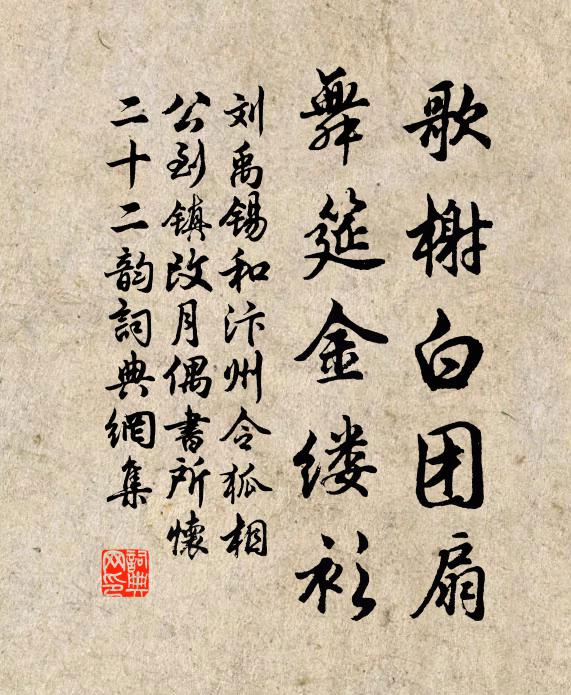 歌榭白团扇
舞筵金缕衫
刘禹锡和汴州令狐相
公到镇改月偶书所懷
二十二韵詞典網集
詞典
网印